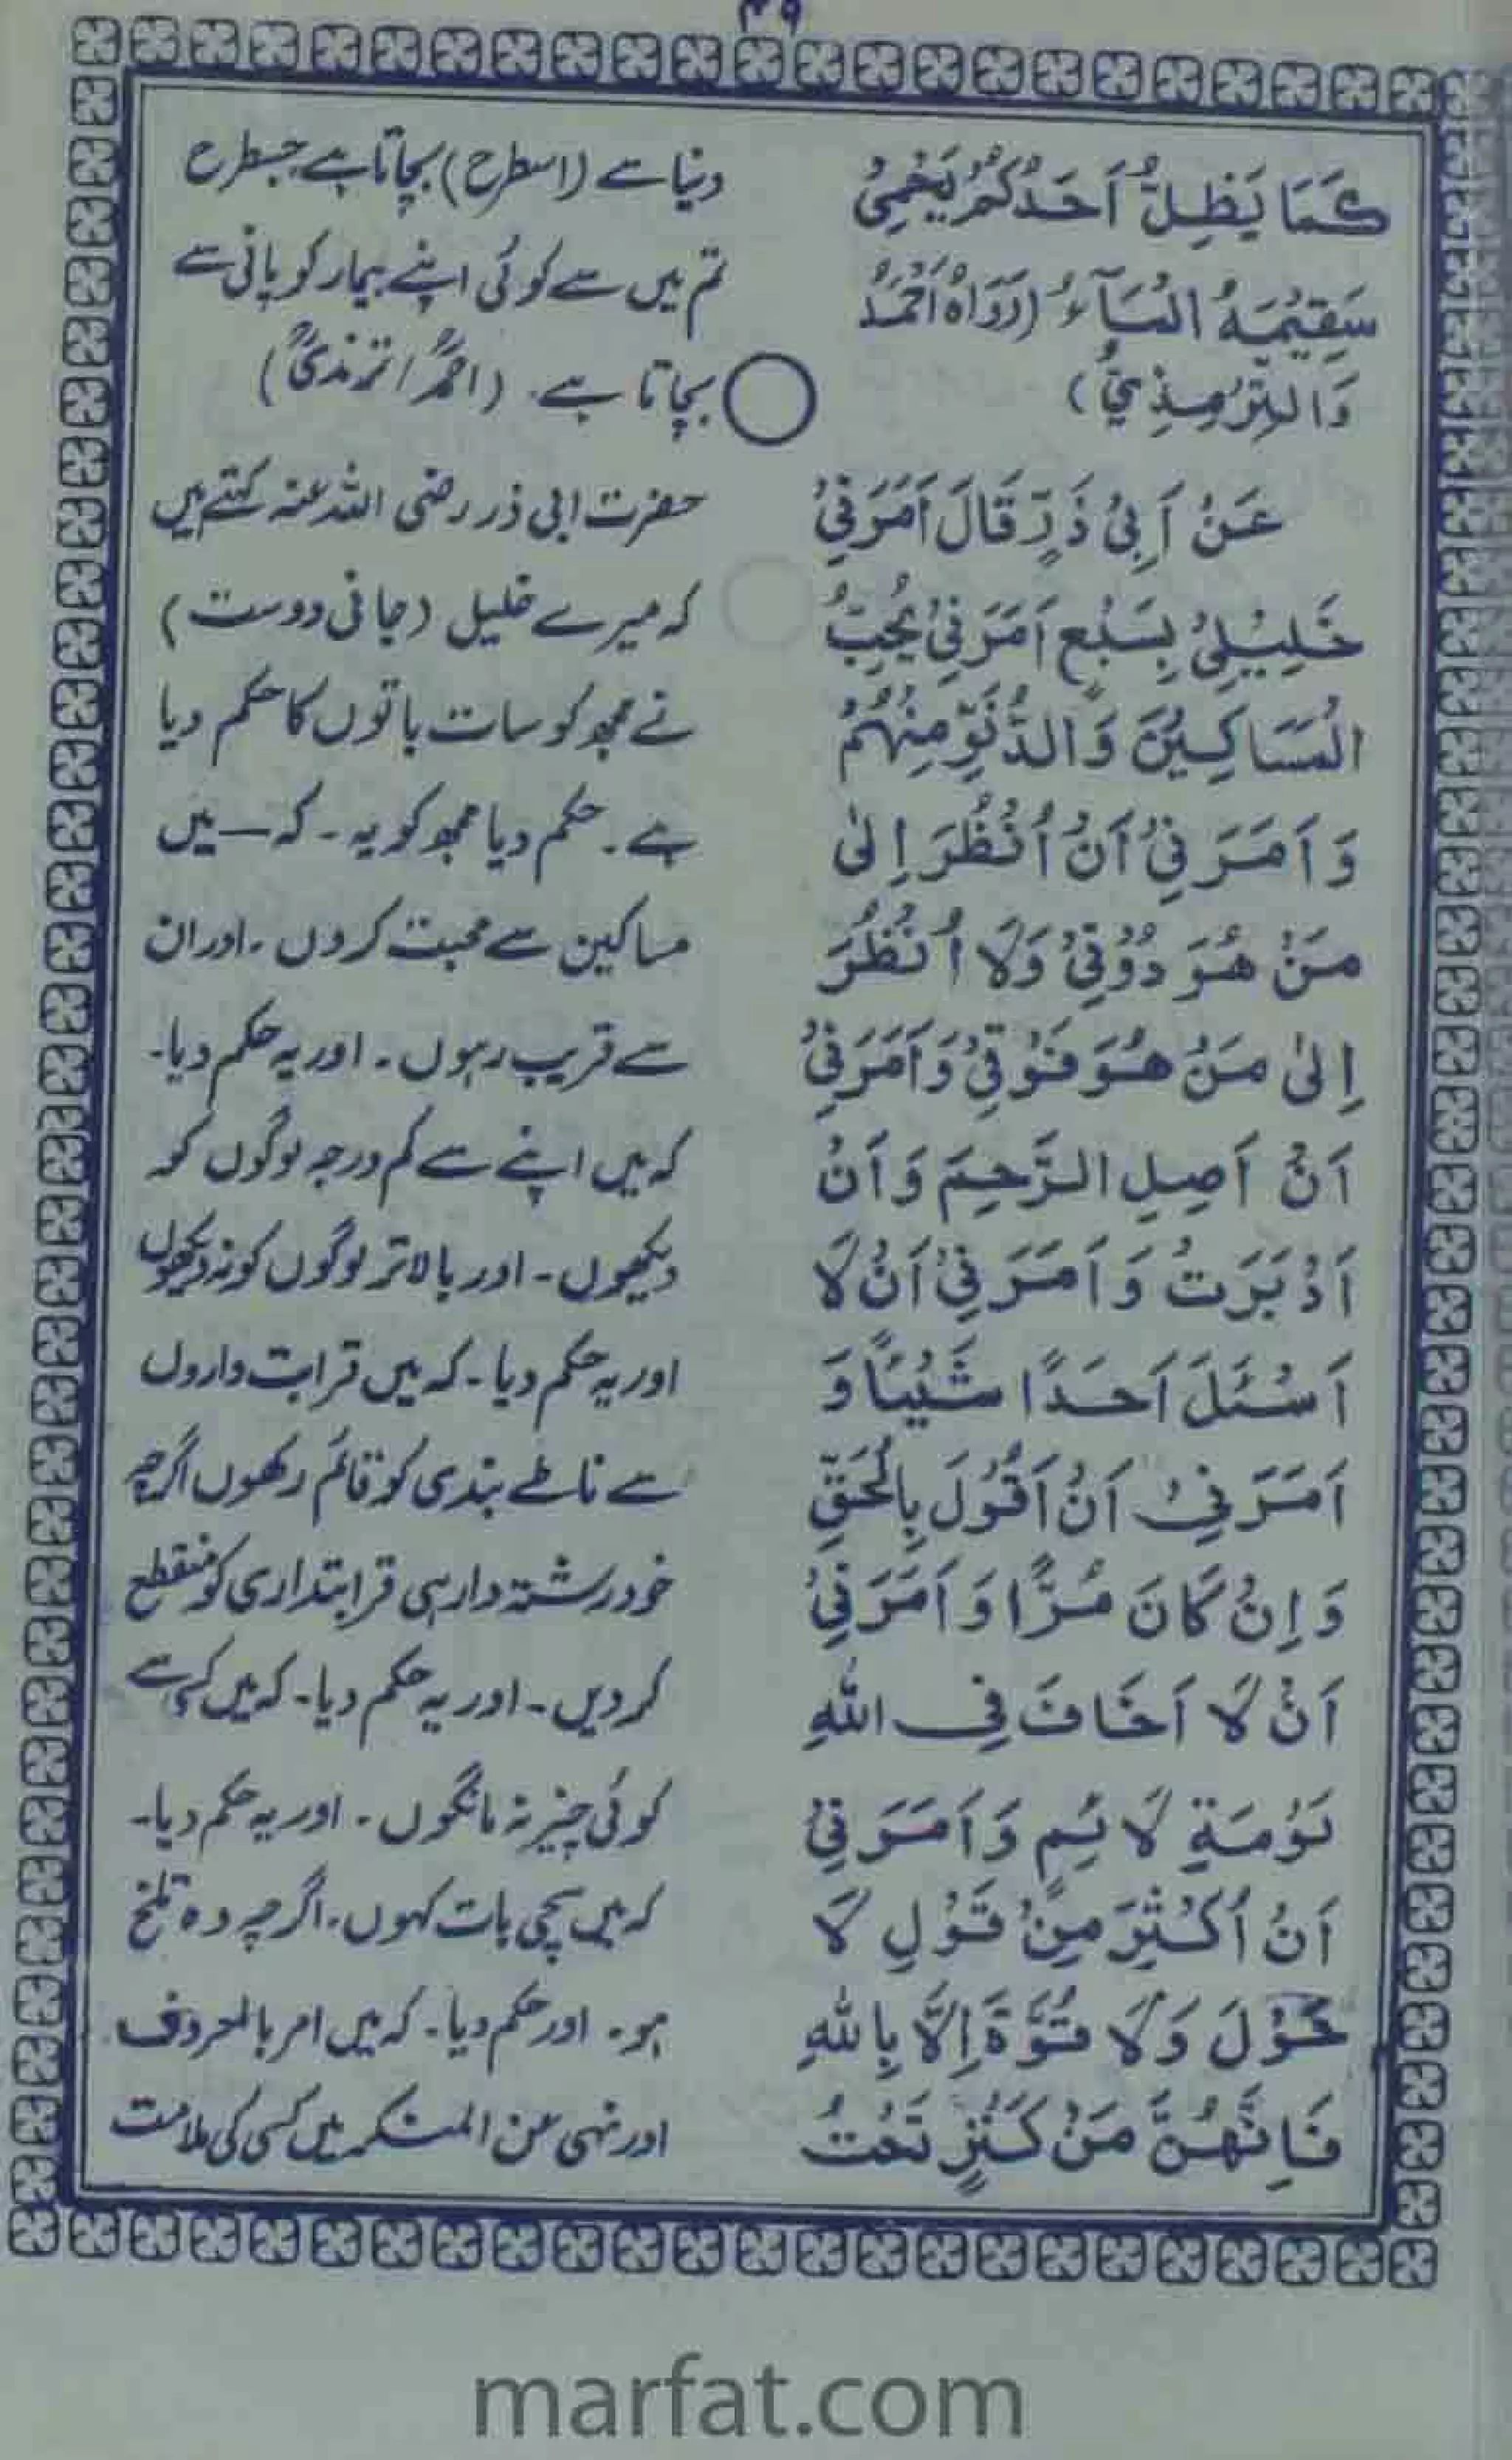 ۴۹
كَمَا يَظِلُّ اَحَدُكُمْ يَحْمِيْ
سَقِيْمَهُ الْمَآءُ (رَوَاهُ اَحْمَدُ
وَالتِّرْمِذِيُّ)
عَنْ اَبِيْ ذَرٍّ قَالَ اَمَرَنِيْ
خَلِيْلِيْ بِسَبْعٍ اَمَرَنِيْ بِحُبِّ
الْمَسَاكِيْنَ وَالدُّنُوِّ مِنْهُمْ
وَاَمَرَنِيْ اَنْ اُنْظُرَ اِلٰى
مَنْ هُوَ دُوْنِيْ وَلَا اُنْظُرَ
اِلٰى مَنْ هُوَ فَوْقِيْ وَاَمَرَنِيْ
اَنْ اَصِلِ الرَّحِمَ وَاَنْ
اَدْبَرَتْ وَاَمَرَنِيْ اَنْ لَا
اَسْئَلَ اَحَدًا شَيْئًا وَ
اَمَرَنِيْ اَنْ اَقُوْلَ بِالْحَقِّ
وَاِنْ كَانَ مُرًّا وَاَمَرَنِيْ
اَنْ لَا اَخَافَ فِى اللهِ
لَوْمَةِ لَائِمٍ وَاَمَرَنِيْ
اَنْ اُكْثِرَ مِنْ قَوْلِ لَا
حَوْلَ وَلَا قُوَّةَ اِلَّا بِاللهِ
فَاِنَّهُنَّ مَنْ كَنْزٍ تَحْتَ
دنیا سے (اسطرح) بچاتا ہے جسطرح
تم میں سے کوئی اپنے بیمار کو پانی سے
بچاتا ہے۔ (احمدؒ / ترمذیؒ)
حضرت ابی ذر رضی اللہ عنہ کہتے ہیں
کہ میرے خلیل (جانی دوست)
نے مجھ کو سات باتوں کا حکم دیا
ہے۔ حکم دیا مجھ کو یہ۔ کہ — میں
مساکین سے محبت کروں۔ اور ان
سے قریب رہوں۔ اور یہ حکم دیا۔
کہ میں اپنے سے کم درجہ لوگوں کو
دیکھوں۔ اور بالاتر لوگوں کو نہ دیکھوں
اور یہ حکم دیا۔ کہ میں قرابت داروں
سے ناطے بندی کو قائم رکھوں اگرچہ
خود رشتہ دار ہی قرابتداری کو منقطع
کردیں۔ اور یہ حکم دیا۔ کہ میں کسی سے
کوئی چیز نہ مانگوں۔ اور یہ حکم دیا۔
کہ میں سچی بات کہوں۔ اگرچہ وہ تلخ
ہو۔ اور حکم دیا۔ کہ میں امر بالمعروف
اور نہی عن المنکر میں کسی کی ملامت
marfat.com